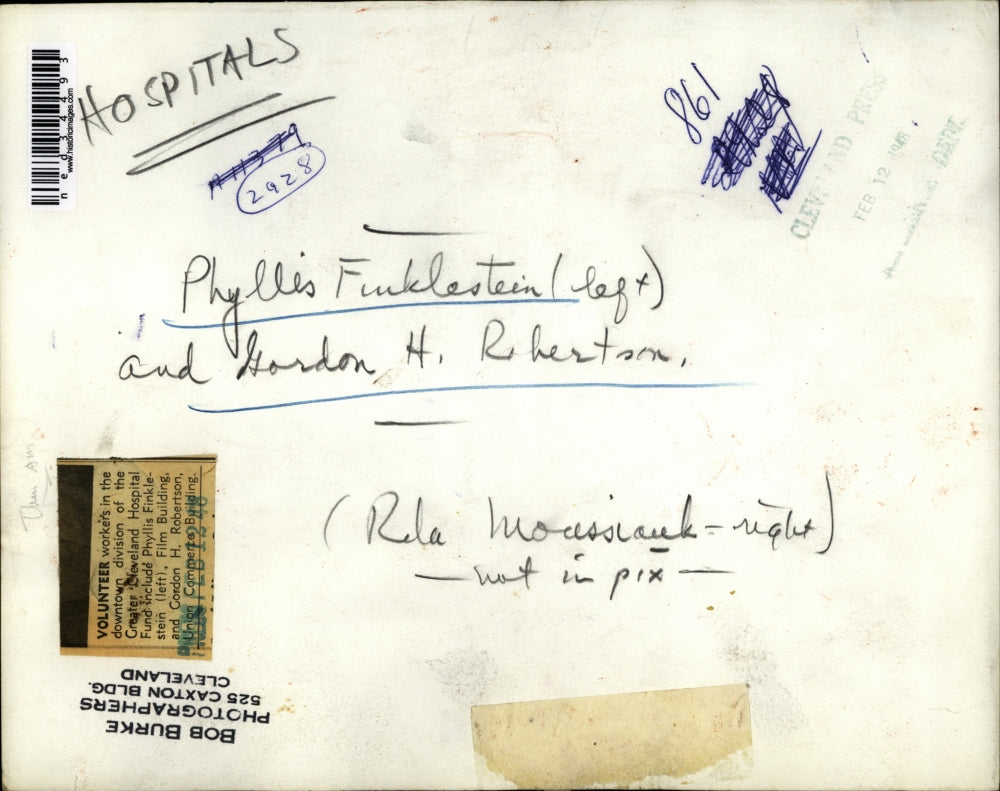 ned34493
www.historicimages.com
HOSPITALS
2928
861
CLEVELAND PRESS
FEB 12 1948
Phyllis Finklestein (left)
and Gordon H. Robertson.
(Rela - right)
— not in pix —
VOLUNTEER workers in the
downtown division of the
Greater Cleveland Hospital
Fund include Phyllis Finkle-
stein (left), Film Building,
and Gordon H. Robertson,
Union Commerce Building.
FEB 12 1948
BOB BURKE
PHOTOGRAPHERS
525 CAXTON BLDG.
CLEVELAND